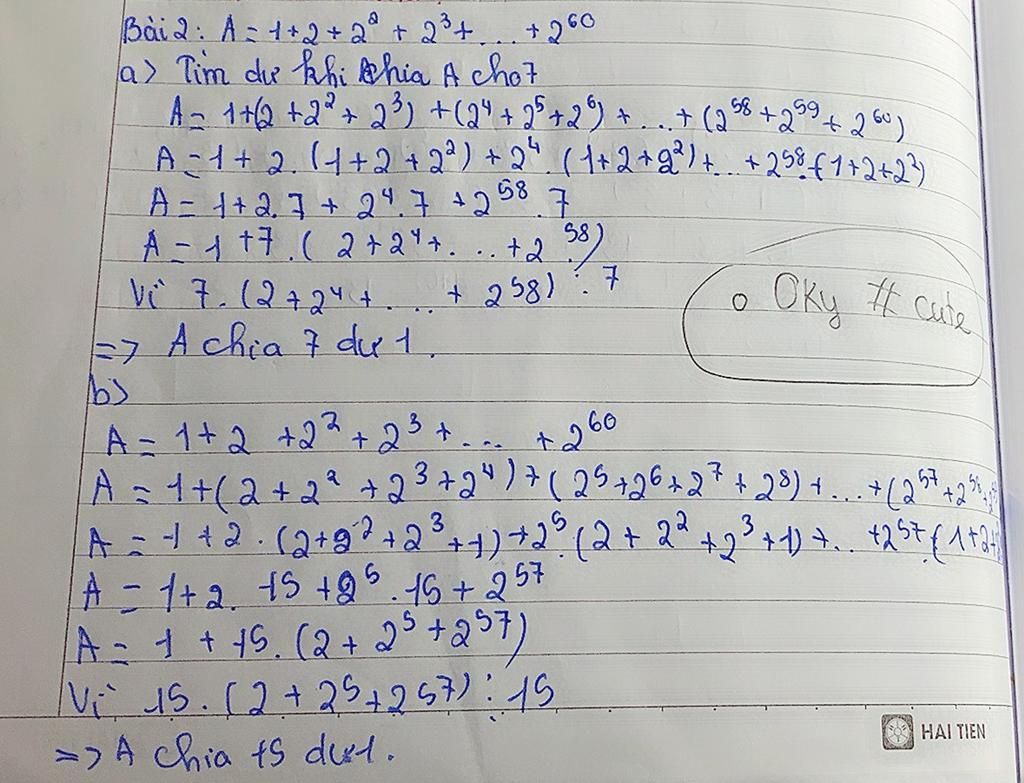 Bài 2: A = 1 + 2 + 2² + 2³ + ... + 2⁶⁰
a> Tìm dư khi chia A cho 7
A = 1 + (2 + 2² + 2³) + (2⁴ + 2⁵ + 2⁶) + ... + (2⁵⁸ + 2⁵⁹ + 2⁶⁰)
A = 1 + 2 . (1 + 2 + 2²) + 2⁴ . (1 + 2 + 2²) + ... + 2⁵⁸ . (1 + 2 + 2²)
A = 1 + 2.7 + 2⁴.7 + 2⁵⁸.7
A = 1 + 7 . (2 + 2⁴ + ... + 2⁵⁸)
Vì 7 . (2 + 2⁴ + ... + 2⁵⁸) ⋮ 7
=> A chia 7 dư 1.
Oky # cute
b>
A = 1 + 2 + 2² + 2³ + ... + 2⁶⁰
A = 1 + (2 + 2² + 2³ + 2⁴) + (2⁵ + 2⁶ + 2⁷ + 2⁸) + ... + (2⁵⁷ + 2⁵⁸ +
A = 1 + 2 . (2 + 2² + 2³ + 1) + 2⁵ . (2 + 2² + 2³ + 1) + ... + 2⁵⁷ . (1 + 2 +
A = 1 + 2 . 15 + 2⁵ . 15 + 2⁵⁷
A = 1 + 15 . (2 + 2⁵ + 2⁵⁷)
Vì 15 . (2 + 2⁵ + 2⁵⁷) ⋮ 15
=> A chia 15 dư 1.
HAI TIEN